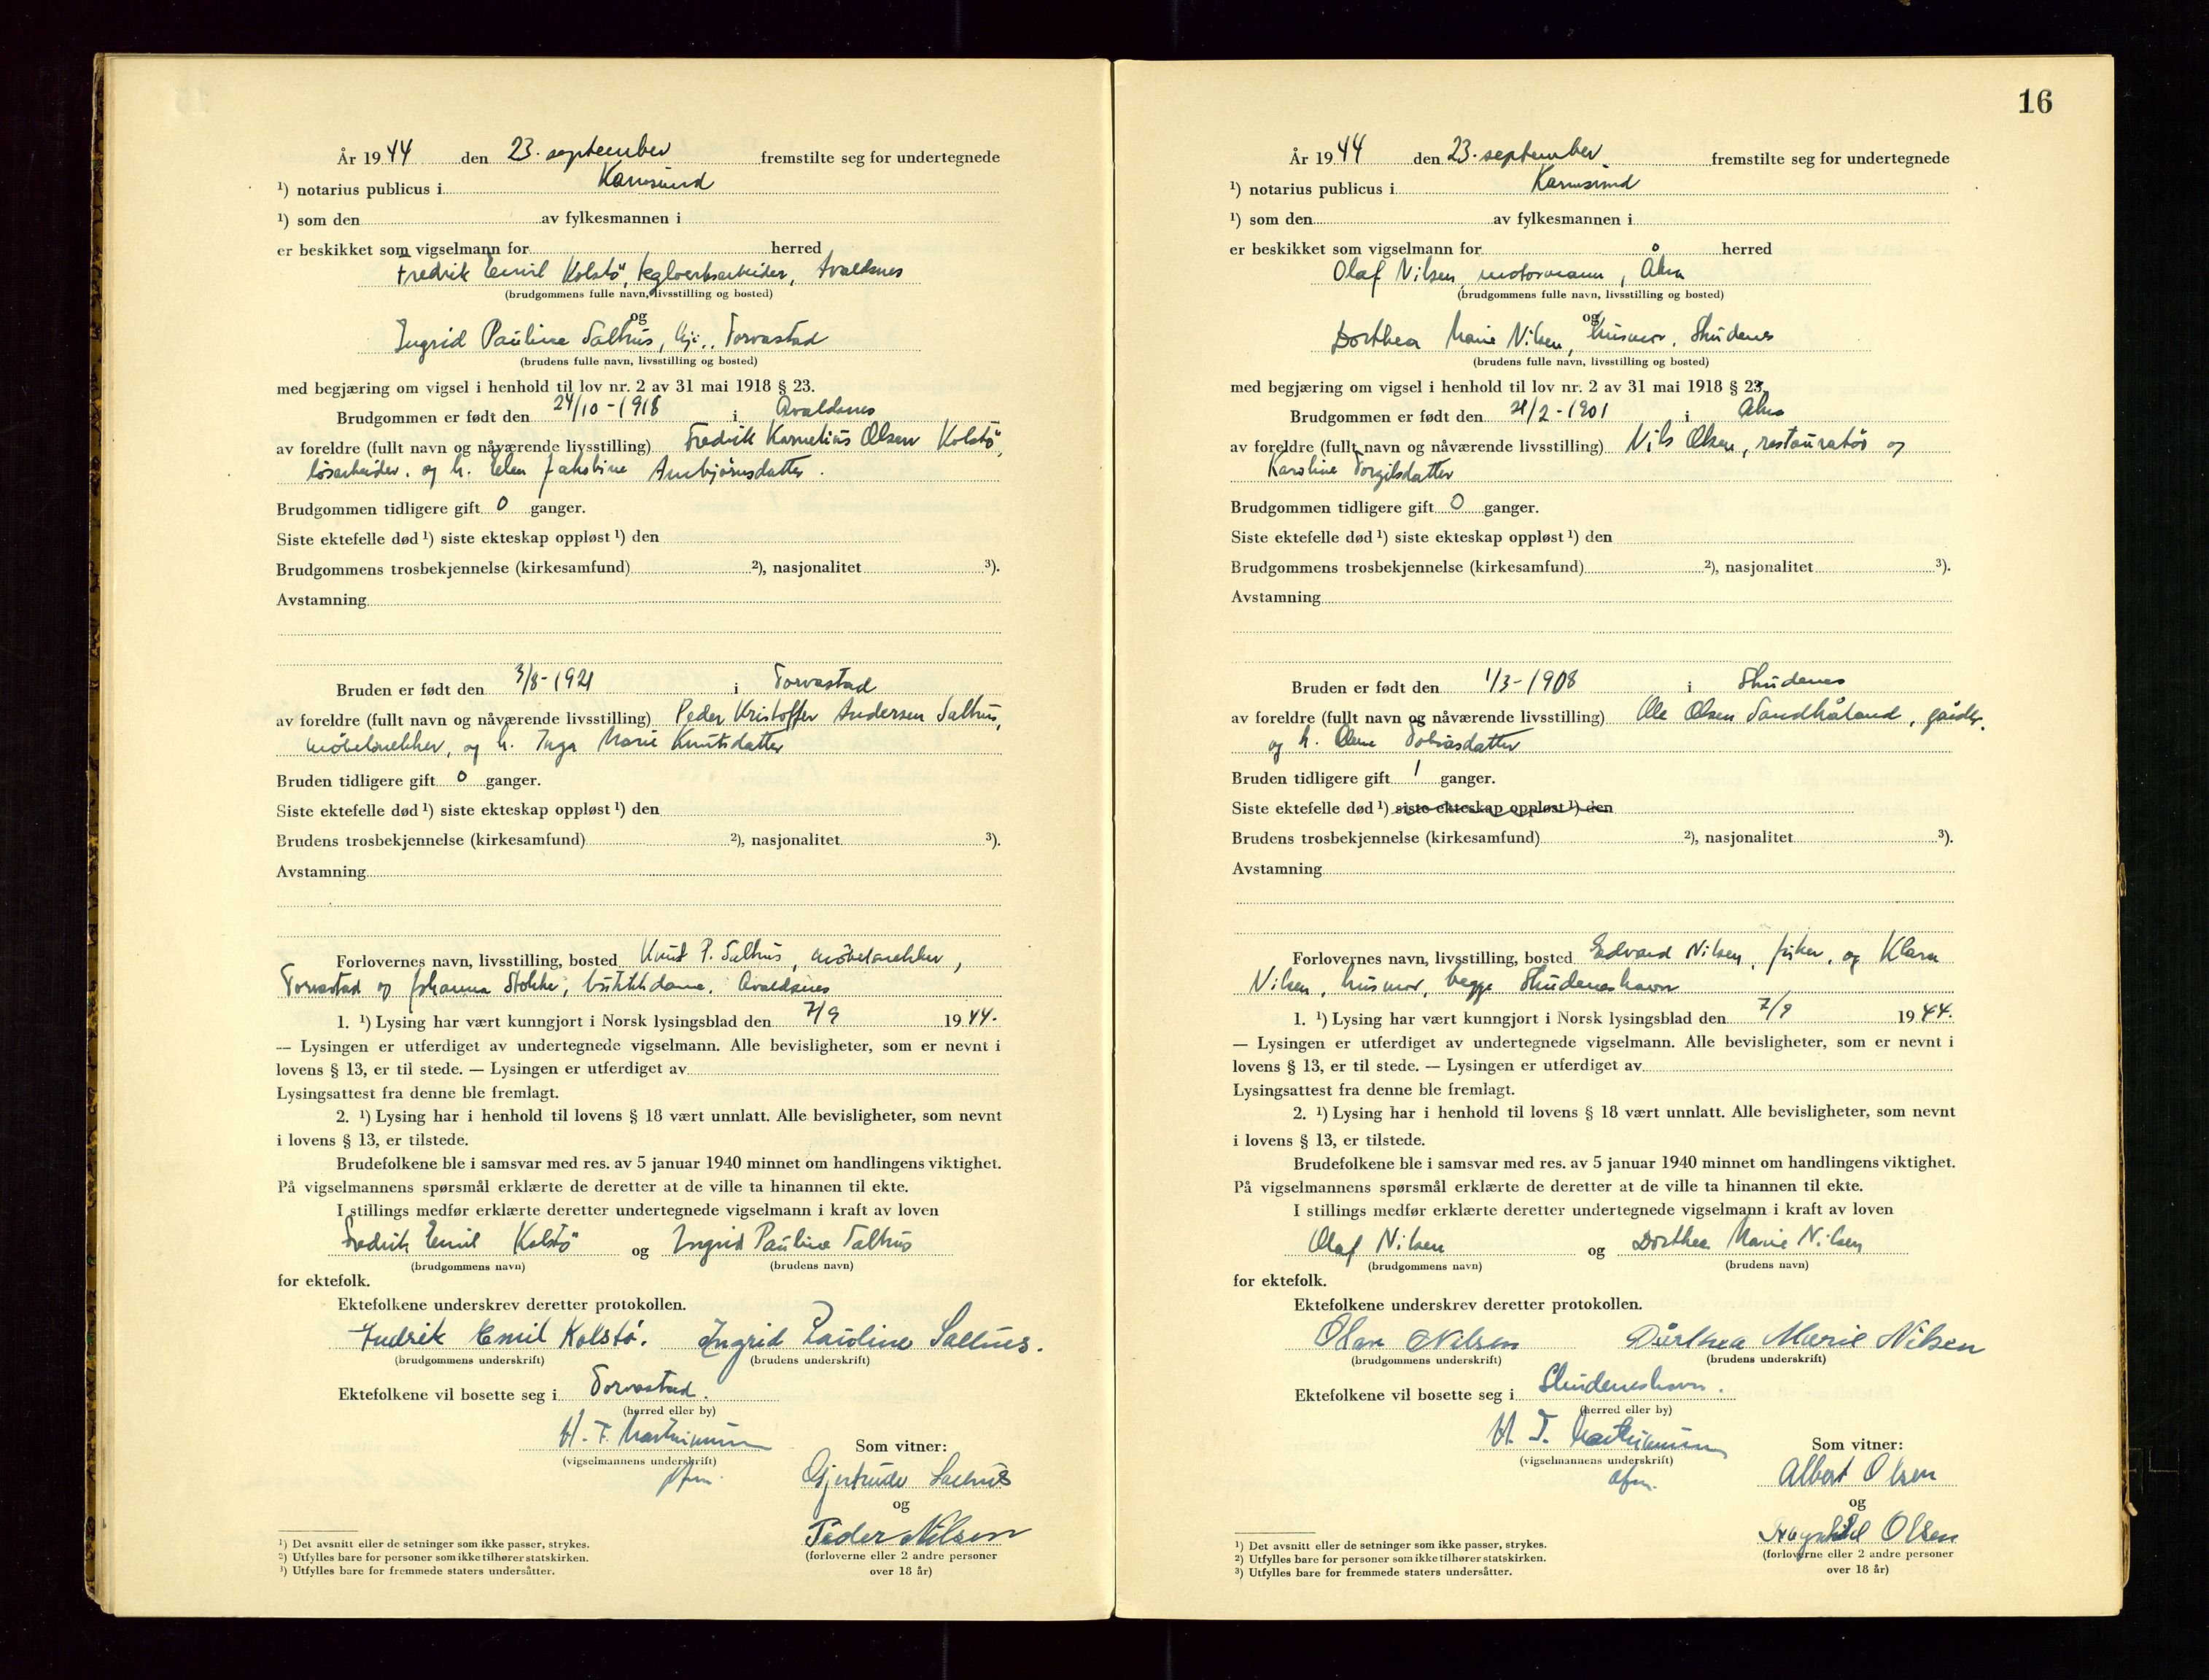 År 1944 den 23. september fremstilte seg for undertegnede
¹) notarius publicus i Karmsund
¹) som den av fylkesmannen i
er beskikket som vigselmann for herred
Fredrik Emil Kolstö, teglverksarbeider, Avaldsnes
(brudgommens fulle navn, livsstilling og bosted)
og
Ingrid Pauline Salhus, Torvastad
(brudens fulle navn, livsstilling og bosted)
med begjæring om vigsel i henhold til lov nr. 2 av 31 mai 1918 § 23.
Brudgommen er født den 24/10-1918 i Avaldsnes
av foreldre (fullt navn og nåværende livsstilling) Fredrik Kornelius Olsen Kolstö,
løsarbeider, og h. Elen Jakobine Arnbjörnsdatter.
Brudgommen tidligere gift 0 ganger.
Siste ektefelle død ¹) siste ekteskap oppløst ¹) den
Brudgommens trosbekjennelse (kirkesamfund) ²), nasjonalitet ³).
Avstamning
Bruden er født den 3/8-1921 i Torvastad
av foreldre (fullt navn og nåværende livsstilling) Peder Kristoffer Andersen Salhus,
möbelsnekker, og h. Inga Marie Knutsdatter
Bruden tidligere gift 0 ganger.
Siste ektefelle død ¹) siste ekteskap oppløst ¹) den
Brudens trosbekjennelse (kirkesamfund) ²), nasjonalitet ³).
Avstamning
Forlovernes navn, livsstilling, bosted Knut P. Salhus, möbelsnekker,
Torvastad og Johanna Stokke, butikkdame, Avaldsnes
1. ¹) Lysing har vært kunngjort i Norsk lysingsblad den 7/9 1944.
— Lysingen er utferdiget av undertegnede vigselmann. Alle bevisligheter, som er nevnt i
lovens § 13, er til stede. — Lysingen er utferdiget av
Lysingsattest fra denne ble fremlagt.
2. ¹) Lysing har i henhold til lovens § 18 vært unnlatt. Alle bevisligheter, som nevnt
i lovens § 13, er tilstede.
Brudefolkene ble i samsvar med res. av 5 januar 1940 minnet om handlingens viktighet.
På vigselmannens spørsmål erklærte de deretter at de ville ta hinannen til ekte.
I stillings medfør erklærte deretter undertegnede vigselmann i kraft av loven
Fredrik Emil Kolstö og Ingrid Pauline Salhus
(brudgommens navn) (brudens navn)
for ektefolk.
Ektefolkene underskrev deretter protokollen.
Fredrik Emil Kolstö. Ingrid Pauline Salhus.
(brudgommens underskrift) (brudens underskrift)
Ektefolkene vil bosette seg i Torvastad.
(herred eller by)
H. T. Martinussen
(vigselmannens underskrift)
Som vitner:
Gjertrude Salhus
og
Peder Nilsen
(forloverne eller 2 andre personer
over 18 år)
¹) Det avsnitt eller de setninger som ikke passer, strykes.
²) Utfylles bare for personer som ikke tilhører statskirken.
³) Utfylles bare for fremmede staters undersåtter.
16
År 1944 den 23. september fremstilte seg for undertegnede
¹) notarius publicus i Karmsund
¹) som den av fylkesmannen i
er beskikket som vigselmann for herred
Olaf Nilsen, motormann, Åkra
(brudgommens fulle navn, livsstilling og bosted)
og
Dorthea Marie Nilsen, husmor, Skudenes
(brudens fulle navn, livsstilling og bosted)
med begjæring om vigsel i henhold til lov nr. 2 av 31 mai 1918 § 23.
Brudgommen er født den 21/2-1901 i Åkra
av foreldre (fullt navn og nåværende livsstilling) Nils Olsen, restauratör og
Karoline Torgilsdatter
Brudgommen tidligere gift 0 ganger.
Siste ektefelle død ¹) siste ekteskap oppløst ¹) den
Brudgommens trosbekjennelse (kirkesamfund) ²), nasjonalitet ³).
Avstamning
Bruden er født den 1/3-1908 i Skudenes
av foreldre (fullt navn og nåværende livsstilling) Ole Olsen Sandhåland, gårdbr.
og h. Olene Tobiasdatter
Bruden tidligere gift 1 ganger.
Siste ektefelle død ¹) siste ekteskap oppløst ¹) den
Brudens trosbekjennelse (kirkesamfund) ²), nasjonalitet ³).
Avstamning
Forlovernes navn, livsstilling, bosted Edvard Nilsen, fisker, og Klara
Nilsen, husmor, begge Skudeneshavn
1. ¹) Lysing har vært kunngjort i Norsk lysingsblad den 7/9 1944.
— Lysingen er utferdiget av undertegnede vigselmann. Alle bevisligheter, som er nevnt i
lovens § 13, er til stede. — Lysingen er utferdiget av
Lysingsattest fra denne ble fremlagt.
2. ¹) Lysing har i henhold til lovens § 18 vært unnlatt. Alle bevisligheter, som nevnt
i lovens § 13, er tilstede.
Brudefolkene ble i samsvar med res. av 5 januar 1940 minnet om handlingens viktighet.
På vigselmannens spørsmål erklærte de deretter at de ville ta hinannen til ekte.
I stillings medfør erklærte deretter undertegnede vigselmann i kraft av loven
Olaf Nilsen og Dorthea Marie Nilsen
(brudgommens navn) (brudens navn)
for ektefolk.
Ektefolkene underskrev deretter protokollen.
Olav Nilsen Dorthea Marie Nilsen
(brudgommens underskrift) (brudens underskrift)
Ektefolkene vil bosette seg i Skudeneshavn.
(herred eller by)
H. T. Martinussen
(vigselmannens underskrift)
Som vitner:
Albert Olsen
og
Ragnhild Olsen
(forloverne eller 2 andre personer
over 18 år)
¹) Det avsnitt eller de setninger som ikke passer, strykes.
²) Utfylles bare for personer som ikke tilhører statskirken.
³) Utfylles bare for fremmede staters undersåtter.